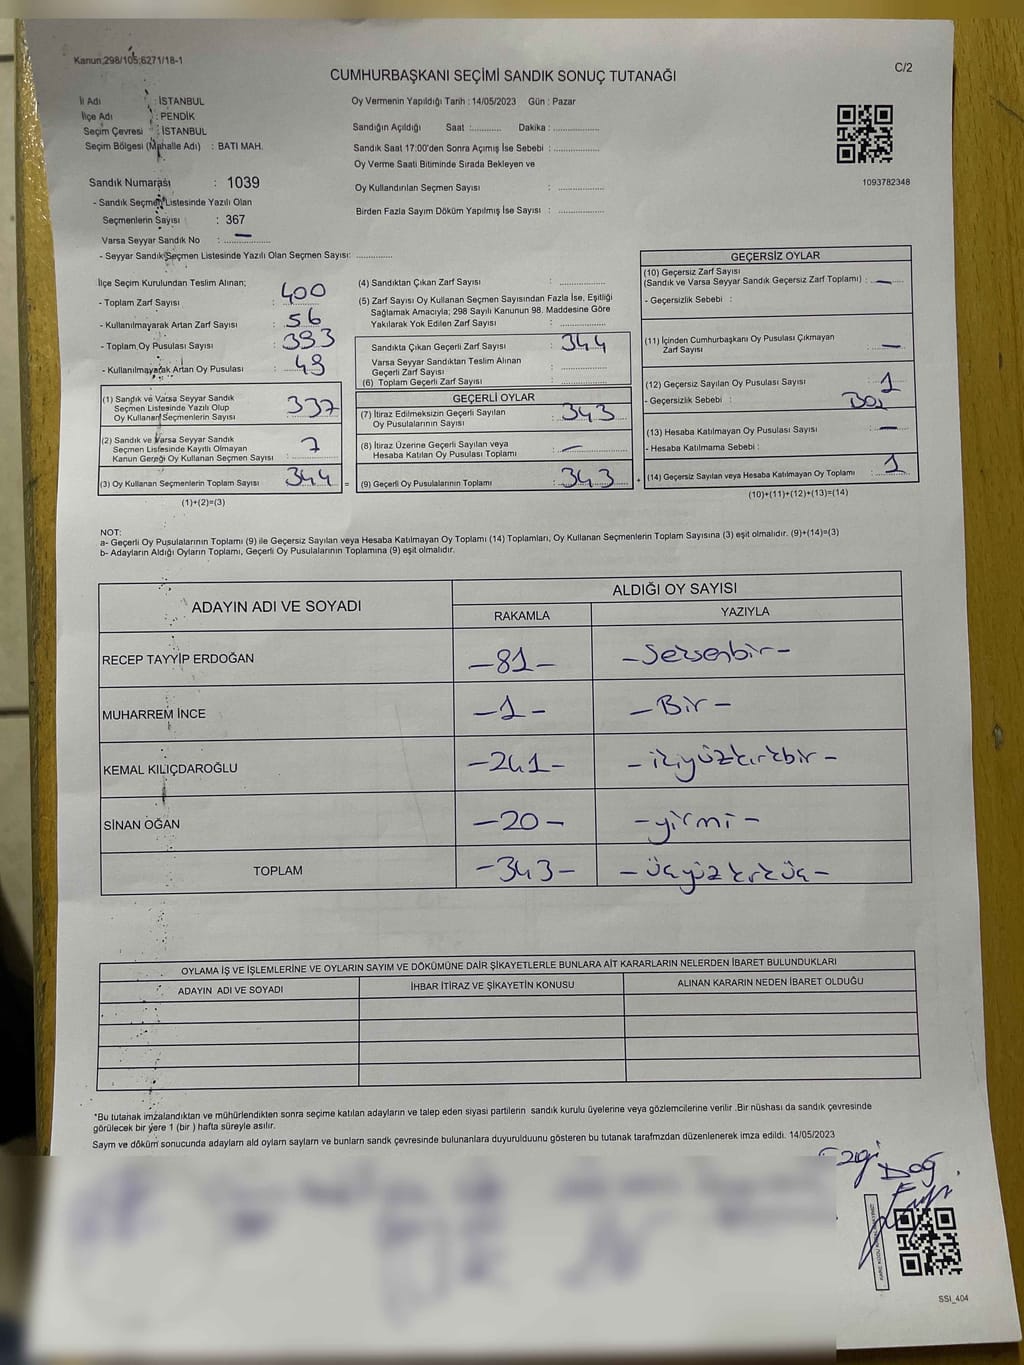 Kanun;298/105;6271/18-1
C/2
CUMHURBAŞKANI SEÇİMİ SANDIK SONUÇ TUTANAĞI
İl Adı : İSTANBUL
İlçe Adı : PENDİK
Seçim Çevresi : İSTANBUL
Seçim Bölgesi (Mahalle Adı) : BATI MAH.
Sandık Numarası : 1039
- Sandık Seçmen Listesinde Yazılı Olan
Seçmenlerin Sayısı : 367
Varsa Seyyar Sandık No : —
- Seyyar Sandık Seçmen Listesinde Yazılı Olan Seçmen Sayısı: ............
Oy Vermenin Yapıldığı Tarih : 14/05/2023 Gün : Pazar
Sandığın Açıldığı Saat :.......... Dakika : ..............
Sandık Saat 17:00'den Sonra Açımış İse Sebebi : ..............
Oy Verme Saati Bitiminde Sırada Bekleyen ve
Oy Kullandırılan Seçmen Sayısı : ..............
Birden Fazla Sayım Döküm Yapılmış İse Sayısı : ..............
1093782348
İlçe Seçim Kurulundan Teslim Alınan;
- Toplam Zarf Sayısı : 400
- Kullanılmayarak Artan Zarf Sayısı : 56
- Toplam Oy Pusulası Sayısı : 393
- Kullanılmayarak Artan Oy Pusulası : 49
(1) Sandık ve Varsa Seyyar Sandık
Seçmen Listesinde Yazılı Olup
Oy Kullanan Seçmenlerin Sayısı : 337
(2) Sandık ve Varsa Seyyar Sandık
Seçmen Listesinde Kayıtlı Olmayan
Kanun Gereği Oy Kullanan Seçmen Sayısı : 7
(3) Oy Kullanan Seçmenlerin Toplam Sayısı : 344
(1)+(2)=(3)
(4) Sandıktan Çıkan Zarf Sayısı : ..............
(5) Zarf Sayısı Oy Kullanan Seçmen Sayısından Fazla İse, Eşitliği
Sağlamak Amacıyla; 298 Sayılı Kanunun 98. Maddesine Göre
Yakılarak Yok Edilen Zarf Sayısı : ..............
Sandıkta Çıkan Geçerli Zarf Sayısı : 344
Varsa Seyyar Sandıktan Teslim Alınan
Geçerli Zarf Sayısı : ..............
(6) Toplam Geçerli Zarf Sayısı : ..............
GEÇERLİ OYLAR
(7) İtiraz Edilmeksizin Geçerli Sayılan
Oy Pusulalarının Sayısı : 343
(8) İtiraz Üzerine Geçerli Sayılan veya
Hesaba Katılan Oy Pusulası Toplamı : —
= (9) Geçerli Oy Pusulalarının Toplamı : 343
GEÇERSİZ OYLAR
(10) Geçersiz Zarf Sayısı
(Sandık ve Varsa Seyyar Sandık Geçersiz Zarf Toplamı) : —
- Geçersizlik Sebebi :
(11) İçinden Cumhurbaşkanı Oy Pusulası Çıkmayan
Zarf Sayısı : —
(12) Geçersiz Sayılan Oy Pusulası Sayısı : 1
- Geçersizlik Sebebi : Boş
(13) Hesaba Katılmayan Oy Pusulası Sayısı : —
- Hesaba Katılmama Sebebi :
+ (14) Geçersiz Sayılan veya Hesaba Katılmayan Oy Toplamı : 1
(10)+(11)+(12)+(13)=(14)
NOT:
a- Geçerli Oy Pusulalarının Toplamı (9) ile Geçersiz Sayılan veya Hesaba Katılmayan Oy Toplamı (14) Toplamları, Oy Kullanan Seçmenlerin Toplam Sayısına (3) eşit olmalıdır. (9)+(14)=(3)
b- Adayların Aldığı Oyların Toplamı, Geçerli Oy Pusulalarının Toplamına (9) eşit olmalıdır.
ADAYIN ADI VE SOYADI
ALDIĞI OY SAYISI
RAKAMLA YAZIYLA
RECEP TAYYİP ERDOĞAN -81- -Seksenbir-
MUHARREM İNCE -1- -Bir-
KEMAL KILIÇDAROĞLU -241- -ikiyüzkırkbir-
SİNAN OĞAN -20- -yirmi-
TOPLAM -343- -üçyüzkırküç-
OYLAMA İŞ VE İŞLEMLERİNE VE OYLARIN SAYIM VE DÖKÜMÜNE DAİR ŞİKAYETLERLE BUNLARA AİT KARARLARIN NELERDEN İBARET BULUNDUKLARI
ADAYIN ADI VE SOYADI İHBAR İTİRAZ VE ŞİKAYETİN KONUSU ALINAN KARARIN NEDEN İBARET OLDUĞU
*Bu tutanak imzalandıktan ve mühürlendikten sonra seçime katılan adayların ve talep eden siyasi partilerin sandık kurulu üyelerine veya gözlemcilerine verilir .Bir nüshası da sandık çevresinde
görülecek bir yere 1 (bir ) hafta süreyle asılır.
Saym ve döküm sonucunda adaylarn ald oylarn saylarn ve bunlarn sandk çevresinde bulunanlara duyurulduunu gösteren bu tutanak tarafmzdan düzenlenerek imza edildi. 14/05/2023
Ezgi Doğ
SSI_404